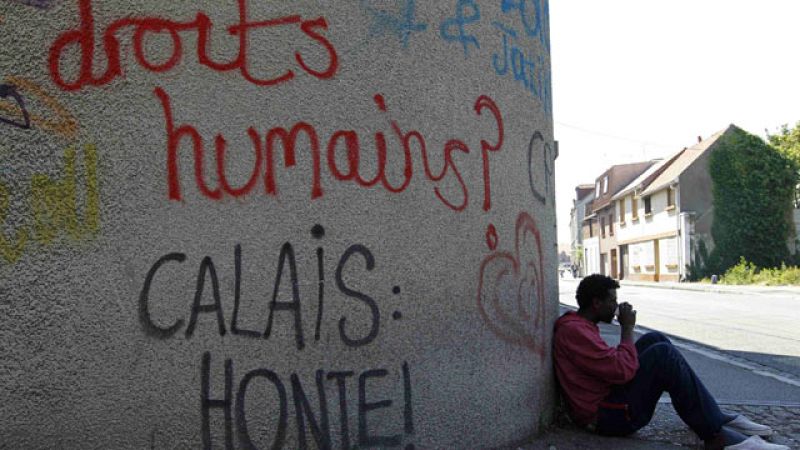 droits
humains?
CALAiS:
HONTE!